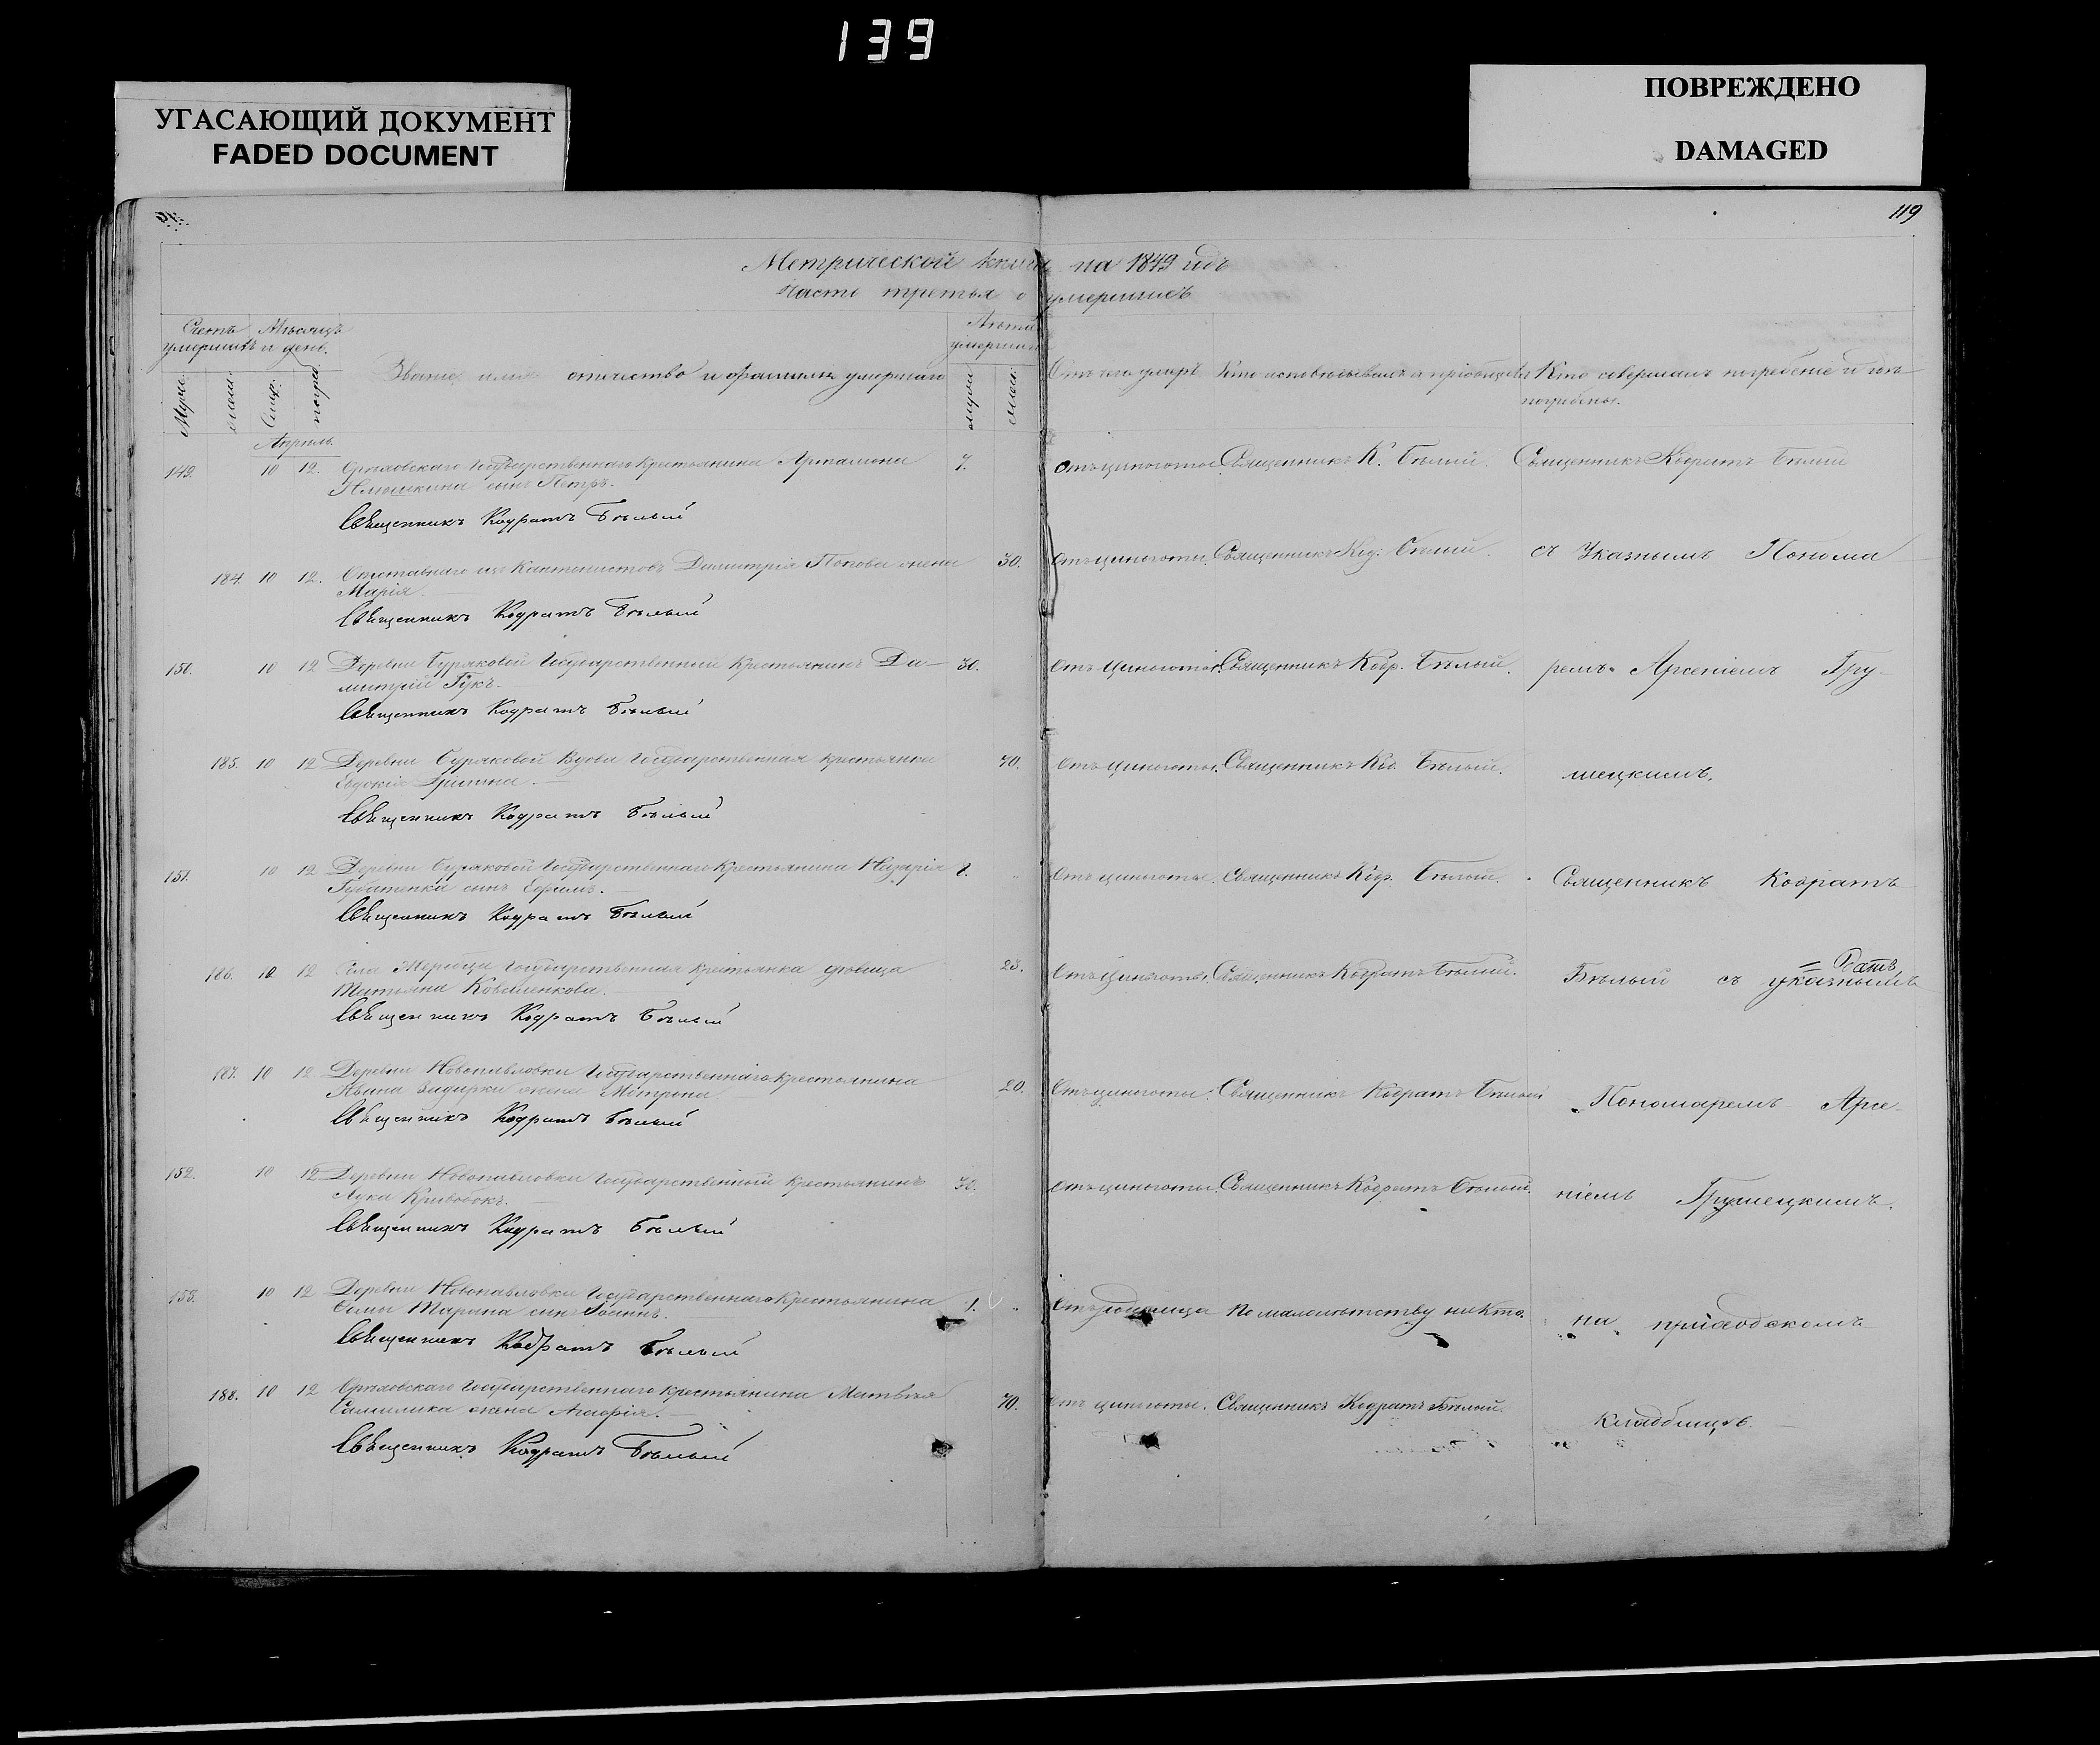 139
УГАСАЮЩИЙ ДОКУМЕНТ
FADED DOCUMENT
ПОВРЕЖДЕНО
DAMAGED
119
Метрической книги на 1849 годъ
Часть третья о умершихъ
Счетъ умершихъ
Мѣсяцъ и день.
Званіе, имя отчество и фамилія умершаго
Лѣта умершаго
Отъ чего умеръ
Кто исповѣдывалъ и пріобщалъ
Кто совершалъ погребеніе и гдѣ погребены.
Апрѣль.
149. 10 12. Орѣховскаго Государственнаго крестьянина Артамона 7. Отъ цынготы Священникъ К. Бѣлый. Священникъ Кодратъ Бѣлый
сынъ Петръ.
Священникъ Кодратъ Бѣлый
184. 10 12. Отставнаго изъ Кантонистовъ Димитрія Попова жена 30. Отъ цынготы. Священникъ Код: Бѣлый. съ Указнымъ Понома
Марія.
Священникъ Кодратъ Бѣлый
150. 10 12 Деревни Буряковой Государственный Крестьянинъ Ди- 30. Отъ цынготы. Священникъ Кодр. Бѣлый. ремъ Арсеніемъ Гру-
митрій Гукъ.
Священникъ Кодратъ Бѣлый
185. 10 12 Деревни Буряковой Вдова Государственная крестьянка 40. Отъ цынготы. Священникъ Код. Бѣлый. шецкимъ.
Евдокія
Священникъ Кодратъ Бѣлый
151. 10 12 Деревни Буряковой Государственнаго Крестьянина Назарія Отъ цынготы. Священникъ Кодр. Бѣлый. Священникъ Кодратъ
сынъ Ефимъ.
Священникъ Кодратъ Бѣлый
186. 10 12 Села Государственная Крестьянка дѣвица 23. Отъ цынготы. Священникъ Кодратъ Бѣлый. Бѣлый съ указнымъ
Татьяна Коваленкова.
Священникъ Кодратъ Бѣлый
187. 10 12 Деревни Новопавловки Государственнаго Крестьянина 20. Отъ цынготы. Священникъ Кодратъ Бѣлый Пономаремъ Арсе-
Ивана жена Матрона.
Священникъ Кодратъ Бѣлый
152. 10 12 Деревни Новопавловки Государственный Крестьянинъ Отъ цынготы. Священникъ Кодратъ Бѣлый. ніемъ Грушецкимъ.
Лука Кривобокъ.
Священникъ Кодратъ Бѣлый
153. 10 12 Деревни Новопавловки Государственнаго Крестьянина 1. По малолѣтству никто. на приходскомъ
сынъ Іоаннъ.
Священникъ Кодратъ Бѣлый
188. 10 12 Орѣховскаго Государственнаго крестьянина Матвѣя 70. Отъ цынготы. Священникъ Кодратъ Бѣлый. кладбищѣ.
жена Агафія.
Священникъ Кодратъ Бѣлый